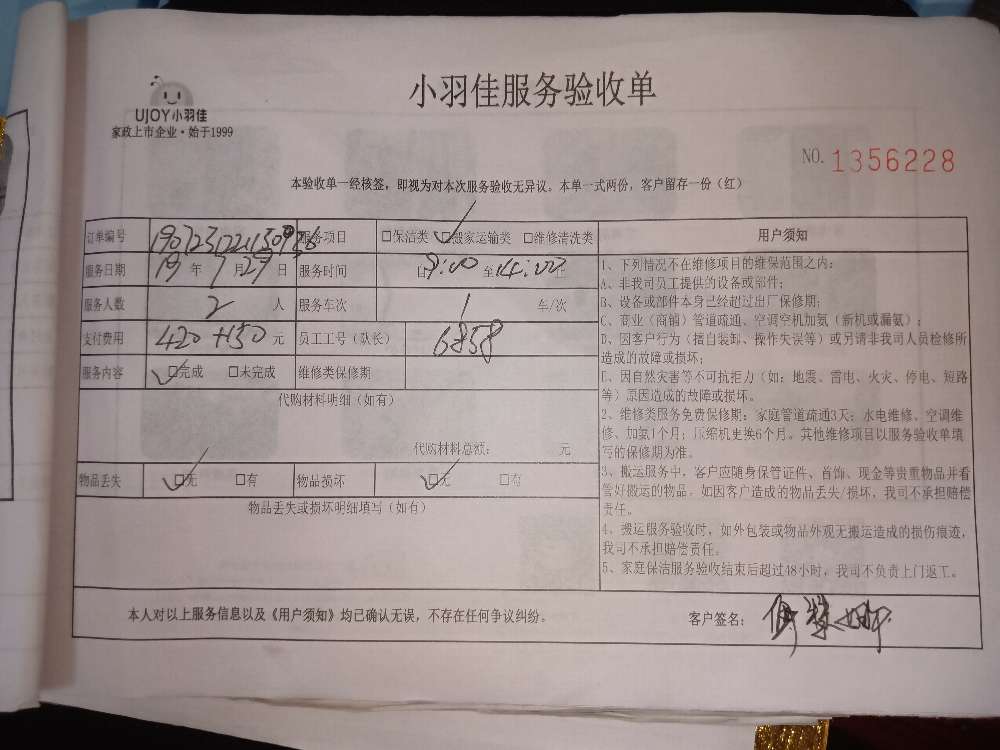 UJOY小羽佳
家政上市企业·始于1999
小羽佳服务验收单
NO. 1356228
本验收单一经核签，即视为对本次服务验收无异议。本单一式两份，客户留存一份（红）
订单编号 服务项目 □保洁类 □搬家运输类 □维修清洗类
服务日期 19 年 7 月 29 日 服务时间 自 9:00 至 14:00 止
服务人数 2 人 服务车次 1 车/次
支付费用 420+150 元 员工工号（队长） 6858
服务内容 □完成 □未完成 维修类保修期
代购材料明细（如有）
代购材料总额： 元
物品丢失 □无 □有 物品损坏 □无 □有
物品丢失或损坏明细填写（如有）
用户须知
1、下列情况不在维修项目的维保范围之内：
A、非我司员工提供的设备或部件；
B、设备或部件本身已经超过出厂保修期；
C、商业（商铺）管道疏通、空调空机加氨（新机或漏氨）；
D、因客户行为（擅自装卸、操作失误等）或另请非我司人员检修所
造成的故障或损坏；
E、因自然灾害等不可抗拒力（如：地震、雷电、火灾、停电、短路
等）原因造成的故障或损坏。
2、维修类服务免费保修期：家庭管道疏通3天；水电维修、空调维
修、加氨1个月；压缩机更换6个月。其他维修项目以服务验收单填
写的保修期为准。
3、搬运服务中，客户应随身保管证件、首饰、现金等贵重物品并看
管好搬运的物品，如因客户造成的物品丢失/损坏，我司不承担赔偿
责任。
4、搬运服务验收时，如外包装或物品外观无搬运造成的损伤痕迹，
我司不承担赔偿责任。
5、家庭保洁服务验收结束后超过48小时，我司不负责上门返工。
本人对以上服务信息以及《用户须知》均已确认无误，不存在任何争议纠纷。 客户签名：